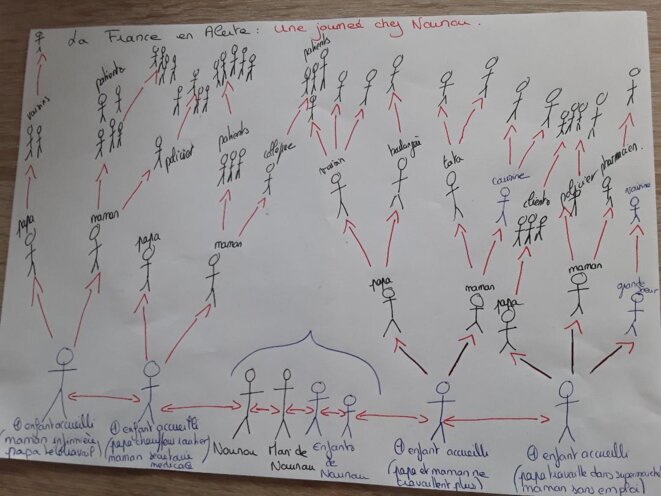 La France en Alerte : Une journée chez Nounou.
patients
patients
voisins
policier
patients
collègue
voisin
boulangère
tata
cousine
clients
policier
pharmacien
voisine
papa
maman
papa
maman
papa
maman
papa
maman
grande soeur
① enfant accueilli
(maman infirmière
papa télétravail)
① enfant accueilli
(papa chauffeur routier
maman secrétaire
médicale)
Nounou
Mari de
Nounou
Enfants
de
Nounou
① enfant accueilli
(papa et maman ne
travaillent plus)
① enfant accueilli
(papa travaille dans supermarché
maman sans emploi)